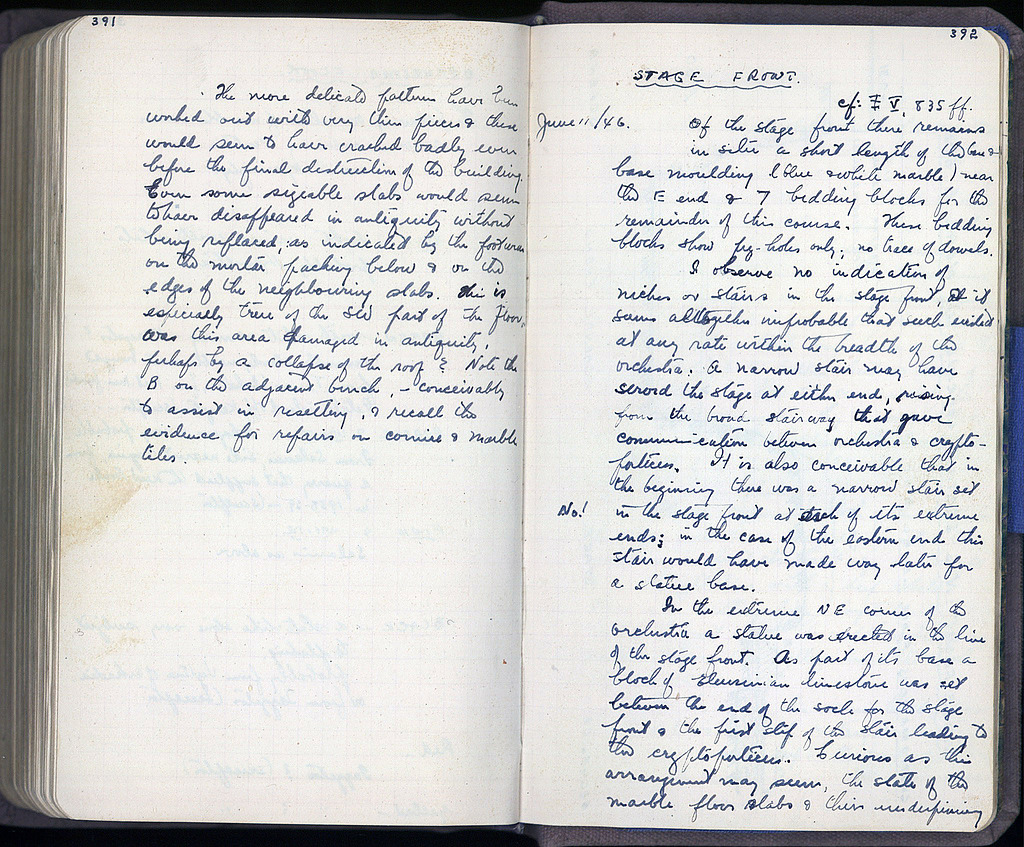 391
The more delicate pattern have been
worked out with very thin pieces & these
would seem to have cracked badly even
before the final destruction of the building.
Even some sizeable slabs would seem
to have disappeared in antiquity without
being replaced, as indicated by the footwear
on the mortar packing below & on the
edges of the neighbouring slabs. This is
especially true of the SW part of the floor.
Was this area damaged in antiquity,
perhaps by a collapse of the roof? Note the
B on the adjacent bench, – conceivably
to assist in resetting, & recall the
evidence for repairs on cornice & marble
tiles.
392
STAGE FRONT.
cf: V, 835 ff.
June 11/46.
Of the stage front there remains
in situ a short length of the base &
base moulding (blue & white marble) near
the E end & 7 bedding blocks for the
remainder of this course. These bedding
blocks show pry-holes only; no trace of dowels.
I observe no indication of
niches or stairs in the stage front, & it
seems altogether improbable that such existed
at any rate within the breadth of the
orchestra. A narrow stair may have
served the stage at either end, rising
from the broad stairway that gave
communication between orchestra & crypto-
porticus. It is also conceivable that in
the beginning there was a narrow stair set
No!
in the stage front at each of its extreme
ends; in the case of the eastern end this
stair would have made way later for
a statue base.
In the extreme NE corner of the
orchestra a statue was erected in the line
of the stage front. As part of its base a
block of Eleusinian limestone was set
between the end of the socle for the stage
front & the first step of the stair leading to
the cryptoporticus. Curious as this
arrangement may seem, the state of the
marble floor slabs & their underpinning